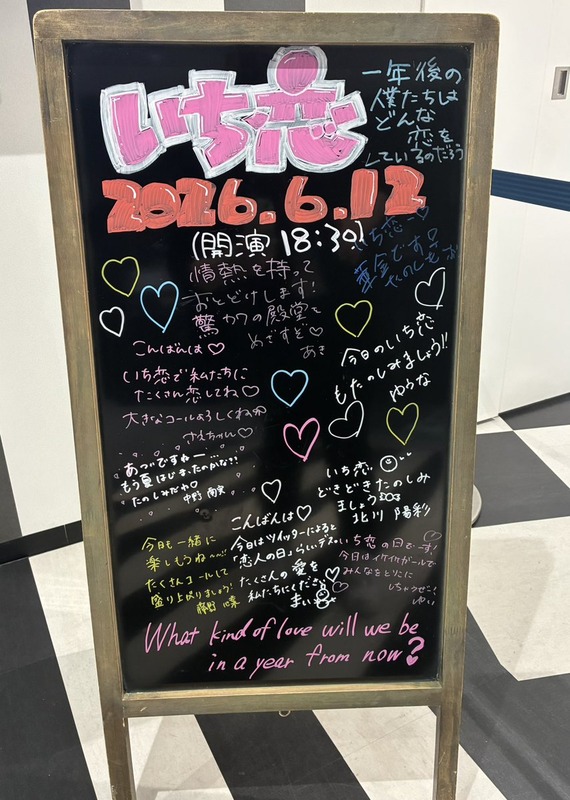 いち恋
一年後の
僕たちは
どんな
恋を
しているのだろう
2026.6.12
(開演 18:30)
いち恋
華金です
情熱を持って
おとどけします!
驚カワの殿堂を
めざすぞ♡
あき
こんばんは♡
いち恋で私たちに
たくさん恋してね♡
大きなコールよろしくねっ
さえちゃん♡
今日のいち恋
もたのしみましょう!!
ゆうな
あついですねー…
もう夏はじまったのかな??
たのしみだね♡
中野
いち恋
どきどきたのしみ
ましょう
北川 陽彩
今日も一緒に
楽しもうね〜!
たくさんコールして
盛り上がりましょう!
藤野 心菜
こんばんは♡
今日はツイッターによると
「恋人の日」らしいデス
たくさんの愛を
私たちにください
まい
いち恋の日でーす!
今日はイケイケガールで
みんなをとりこに
しちゃうぜっ!
ゆい
What kind of love will we be
in a year from now?